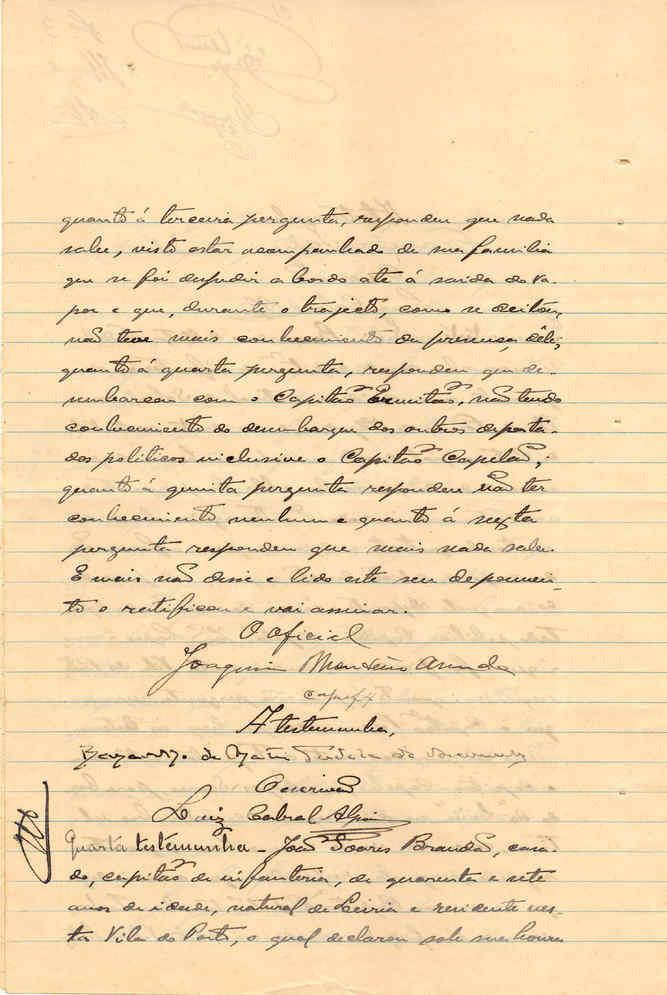 quanto á terceira pergunta, respondeu que nada
sabe, visto estar acompanhado de sua familia
que se foi despedir a bordo até á saida do va-
por e que, durante o trajecto, como se deitou,
não teve mais conhecimento da presença dêle;
quanto á quarta pergunta, respondeu que de-
sembarcou com o Capitão Ermitão, não tendo
conhecimento do desembarque dos outros deporta-
dos politicos inclusive o Capitão Capelão;
quanto á quinta pergunta respondeu não ter
conhecimento nenhum e quanto á sexta
pergunta respondeu que mais nada sabe.
E mais não disse e lido este seu depoimen-
to o ratificou e vai assinar.
O oficial
Joaquim Monteiro
A testemunha,
de
O escrivão
Luiz Cabral
Quarta testemunha - João Soares Brandão, casa-
do, capitão de infantaria, de quarenta e sete
anos de idade, natural de Leiria e residente nes-
ta Vila do Porto, o qual declarou sob sua honra